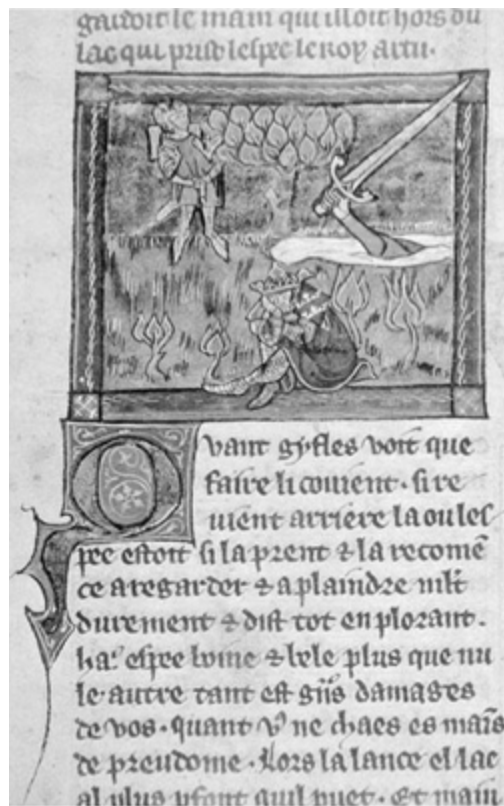 gardoit le main qui issoit hors du
lac qui prist lespee le roy artu.
Quant gyfles voit que
faire li couient. si re
uient arriere la ou les
pee estoit si la prent & la recomē
ce a regarder & a plaindre mlt
durement & dist tot en plorant.
ha. espee boine & bele plus que nu
le autre tant est gñs damages
de vos. quant v9 ne chaes es maīs
de preudome. Lors la lance el lac
al plus pfont quil puet. Et main